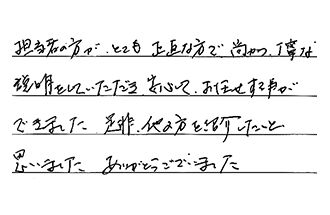 担当者の方が、とても正直な方で、尚かつ、丁寧な
説明をしていただき、安心して、お任せする事が
できました 是非、他の方を紹介したいと
思いました ありがとうございました